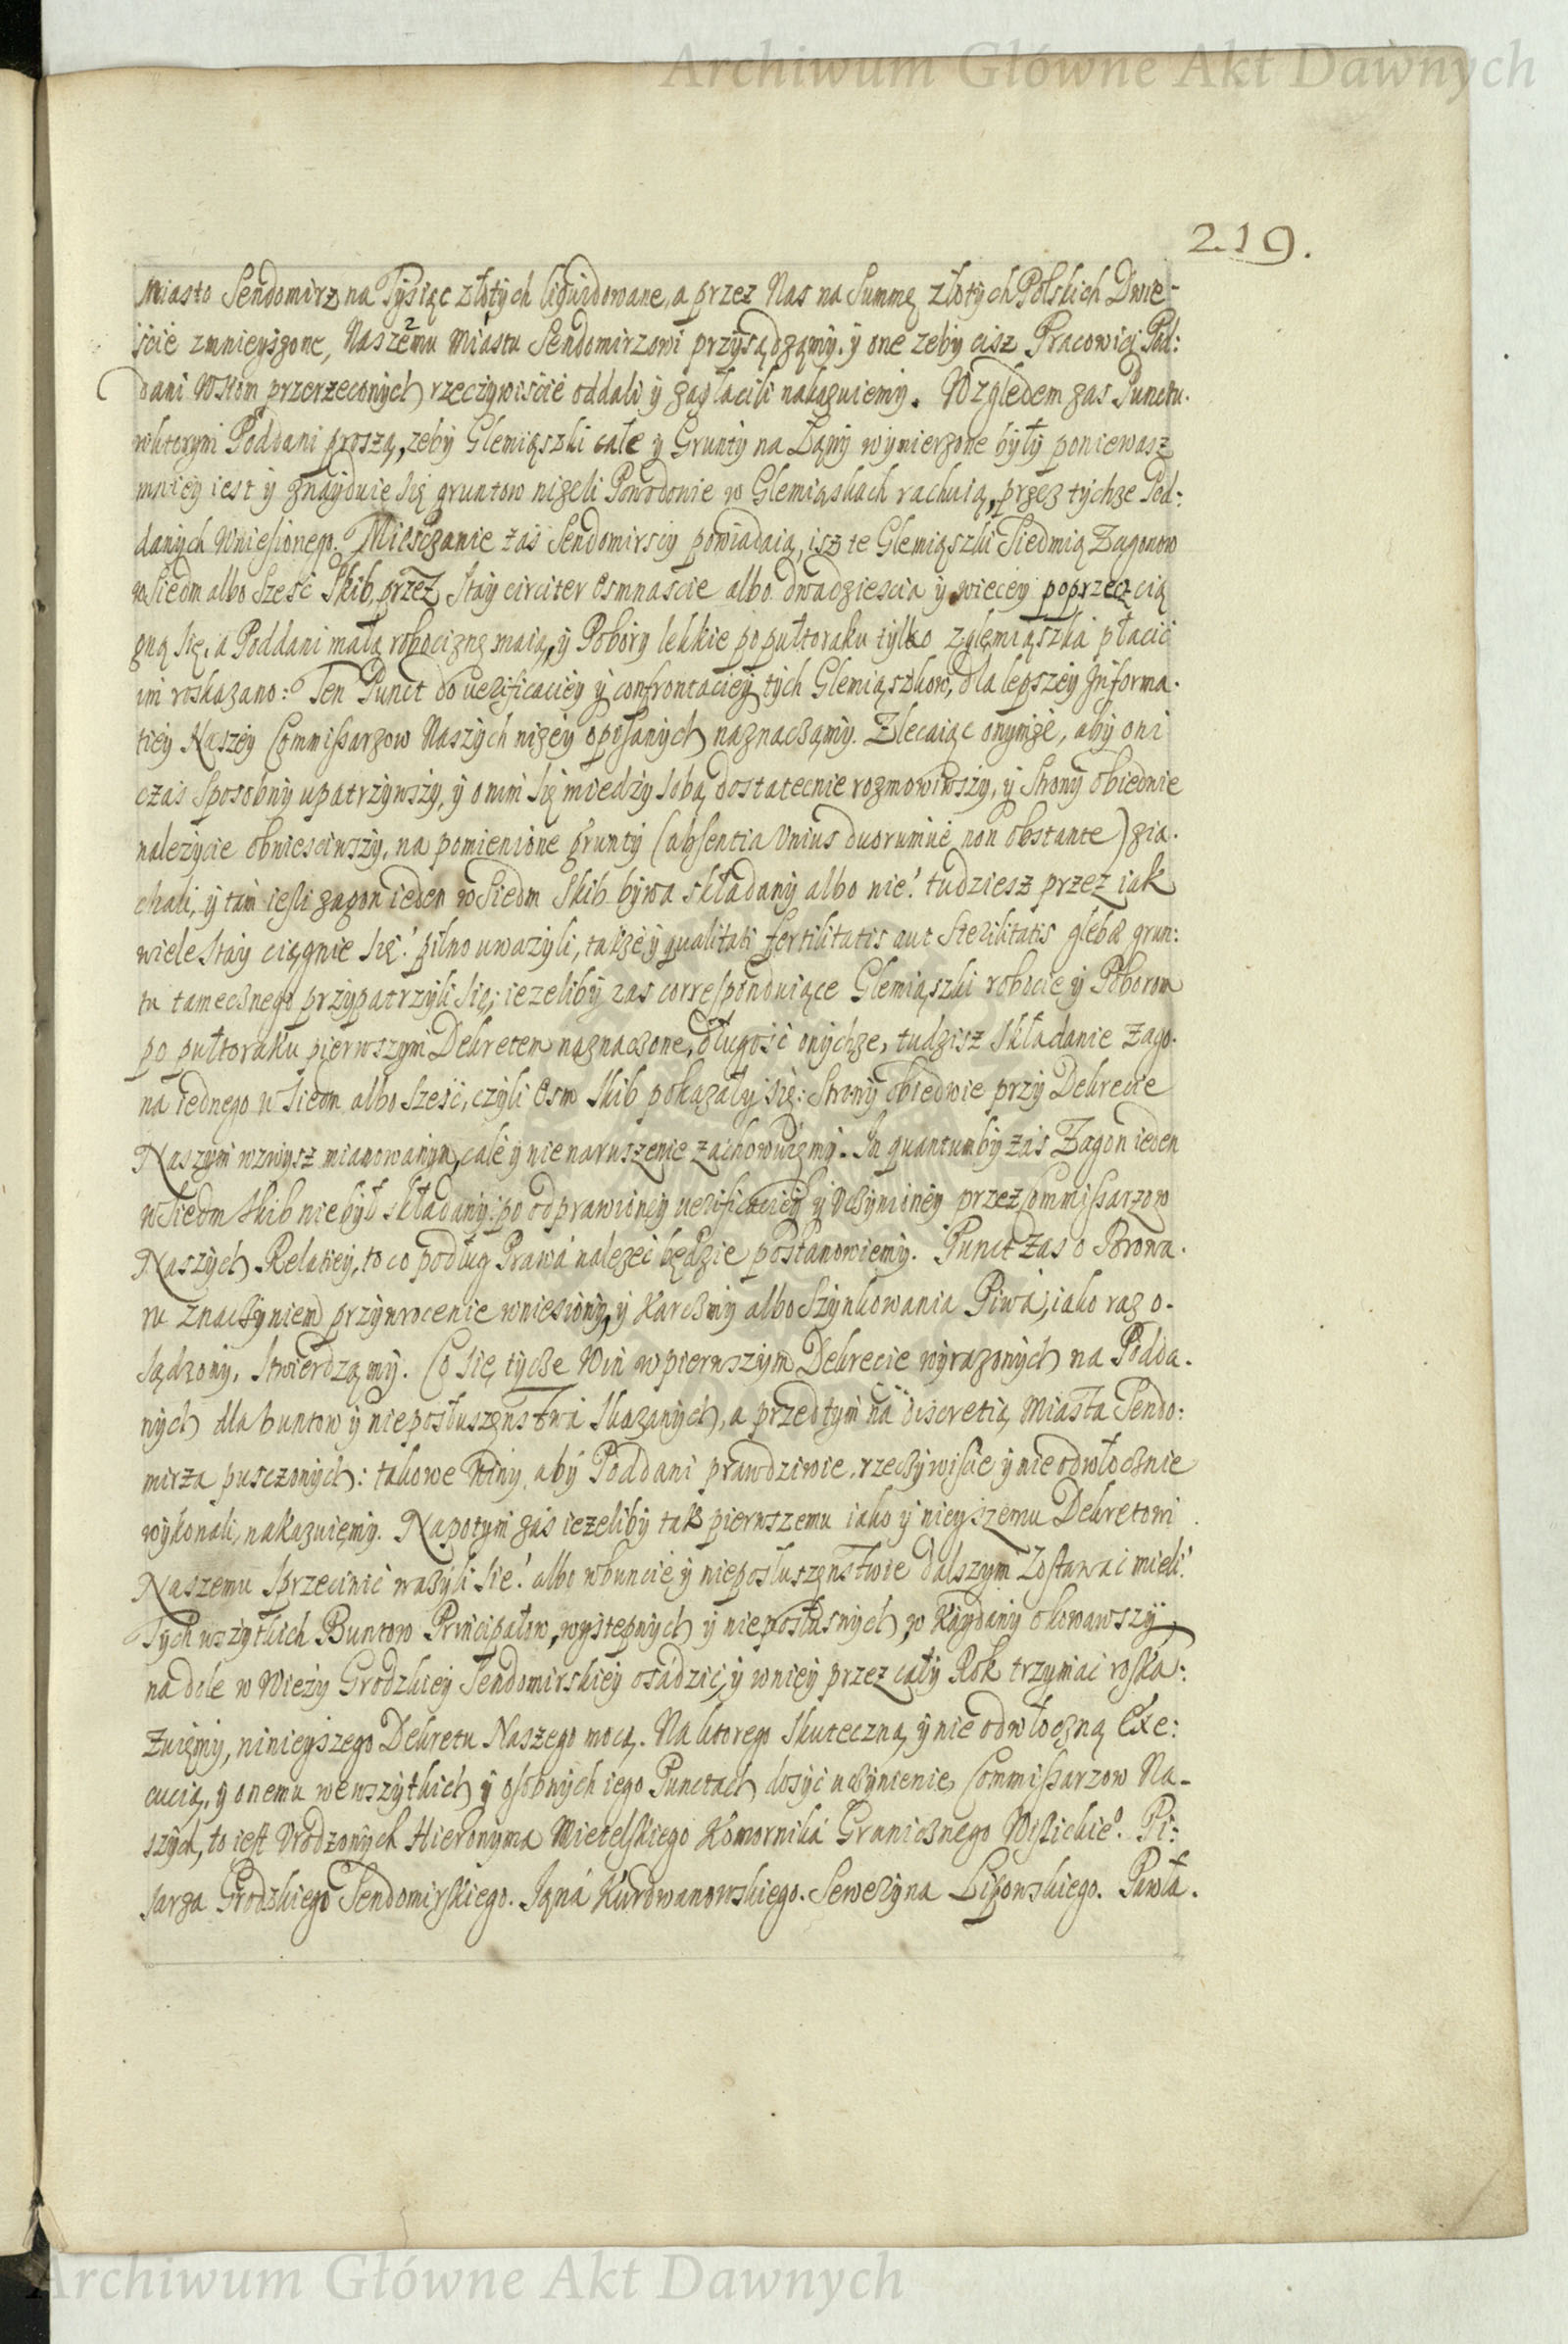 Archiwum Główne Akt Dawnych
219.
Miasto Sendomirz na Tysiąc złotych liquidowane, a przez Nas na Summę złotych Polskich Dwie-
scie zmnieyszone, Naszemu Miastu Sendomirzowi przysądzamy, y one zeby cisz Pracowici Pod:
dani Wsiom przerzeconych rzeczywiscie oddali y zapłacili nakazuiemy. Względem zas Punctu
wktorym Poddani proszą, zeby Glemiąszki całe y Grunty na Łany wymierzone były poniewasz
mniey iest y znayduie się gruntow nizeli Powodowie w Glemiąskach rachuią, przez tychze Pod:
danych Wniesionego. Miesczanie zas Sendomirscy powiadaią, isz te Glemiąszki Siedmią Zagonow
w Siedm albo Szesc Skib, przez Stay circiter Osmnascie albo dwadziescia y wiecey poprzecz cią
gną się, a Poddani małą robociznę maią, y Pobory lekkie po pułtoraku tylko z glemiąszka płacic
im roskazano: Ten Punct do uerificaciey y confrontaciey tych Glemiąszkow, dla lepszey Informa-
tiey Naszey Commissarzow Naszych nizey opisanych naznaczamy. Zlecaiąc onymże, aby oni
czas sposobny upatrzywszy, y o nim się miedzy sobą dostatecnie rozmowiwszy, y Strony obiedwie
nalezycie obwiesciwszy, na pomienione grunty (absentia Unius duorumue non obstante) zia-
chali, y tam iesli zagon ieden w Siedm Skib bywa składany albo nie! tudziesz przez iak
wiele Stay ciągnie się! pilno uwazyli, takze y qualitati fertilitatis aut Sterilitatis glebæ grun:
tu tamecznego przypatrzyli się; iezeliby zas correspondniące Glemiąszki robocie y Poborow
po pułtoraku pierwszym Dekretem naznaczone, długosc onychze, tudzisz składanie Zago-
na iednego w Siedm albo Szesc, czyli Osm Skib pokazały się: Strony obiedwie przy Dekrecie
Naszym wzwysz mianowanym, cale y nienaruszenie zachowuiemy. In quantumby zas Zagon ieden
w Siedm Skib nie był składany: po odprawioney uerificaciey y Uczynioney przez Commissarzow
Naszych Relatiey, to co podług Prawa nalezec będzie postanowiemy. Punct zas o Browa-
ru znaczyniem przywrocenie wniesiony, y Karczmy albo Szynkowania Piwa, iako raz o-
sądzony, stwierdzamy. Co się tycze Win w pierwszym Dekrecie wyrazonych na Podda-
nych dla buntow y nieposłuszenstwa skazanych, a przedtym na discretią Miasta Sendo:
mirza pusczonych: takowe Winy, aby Poddani prawdziwie, rzeczywiscie y nieodwłocznie
wykonali, nakazuiemy. Napotym zas iezeliby tak pierwszemu iako y ninieyszemu Dekretowi
Naszemu sprzeciwic wazyli sie! albo wbuncie y nieposłuszenstwie dalszym zostawac mieli!
Tych wszytkich Buntow Principałow, wystepnych y niepos­łusnych, w Kaydany okowawszy,
na dole w Wiezy Grodzkiey Sendomirskiey osadzic, y wniey przez cały Rok trzymac roska:
zuiemy, ninieyszego Dekretu Naszego mocą. Na ktorego skuteczną y nieodwłoczną Exe:
cucią, y onemu wewszytkich y osobnych iego Punctach dosyc uczynienie Commissarzow Na-
szych, to iest Urodzonych Hieronyma Mietelskiego Komornika Granicznego Wislickie°. Pi:
sarza Grodzkiego Sendomirskiego. Jana Kurdwanowskiego. Seweryna Lipowskiego. Pawła.
Archiwum Główne Akt Dawnych